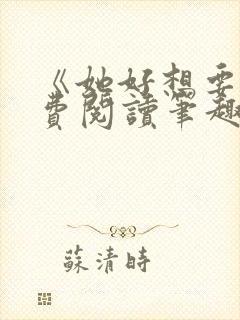 《她好想要
費閱讀筆趣
蘇清時